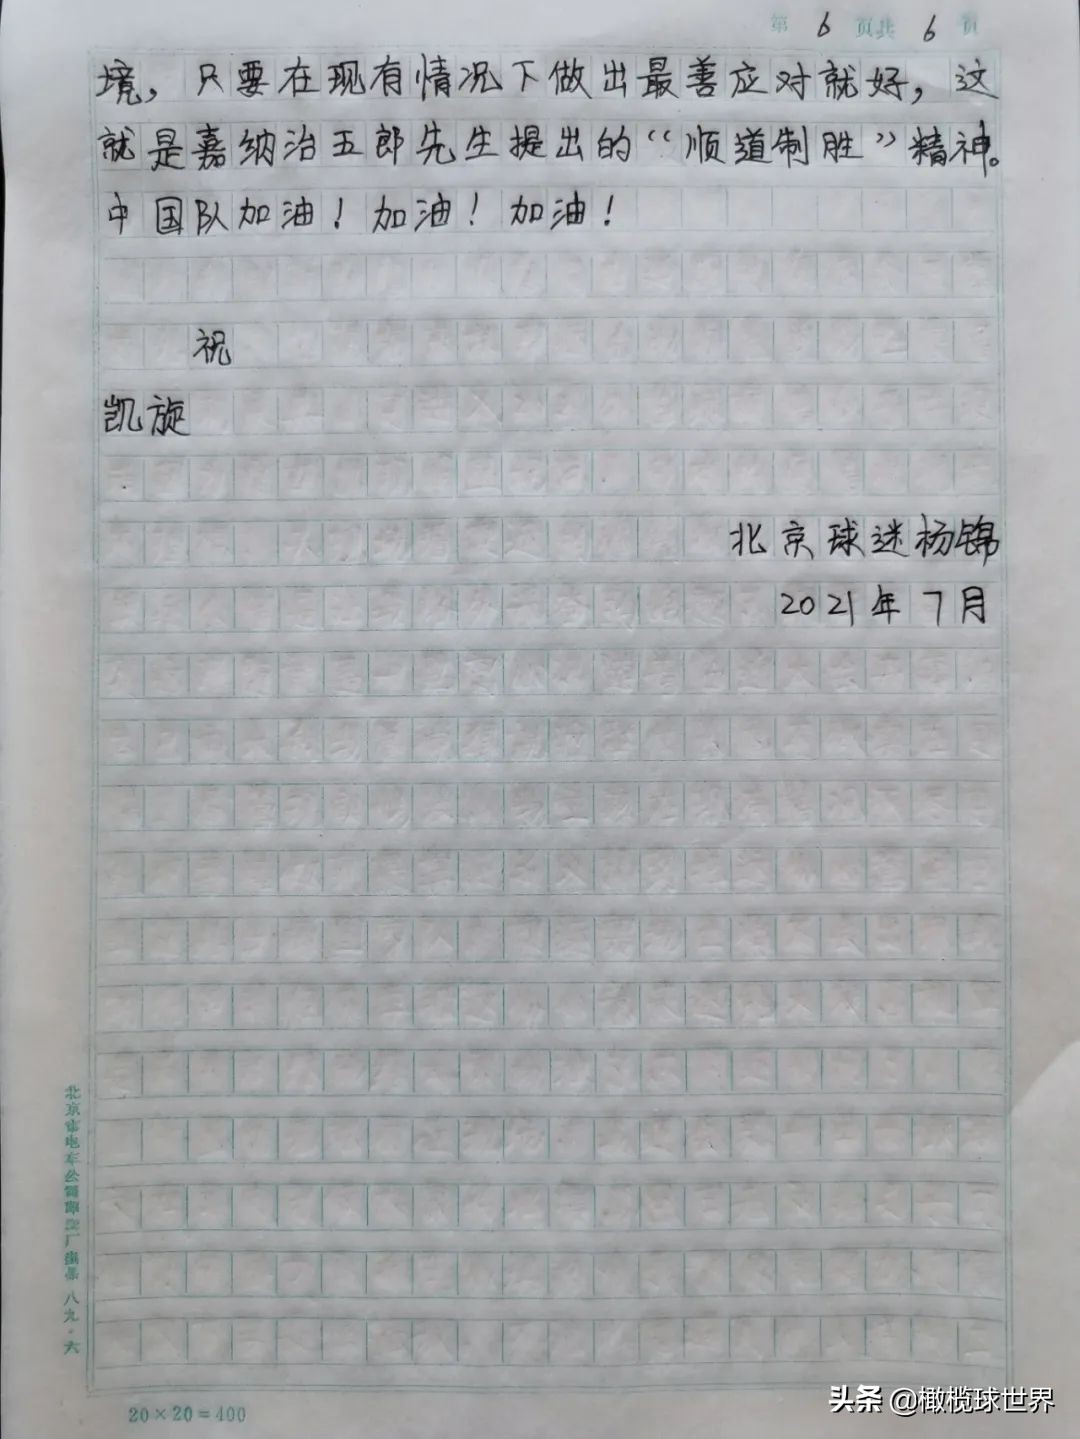 第 6 页共 6 页
境，只要在现有情况下做出最善应对就好，这
就是嘉纳治五郎先生提出的“顺道制胜”精神。
中国队加油！加油！加油！
祝
凯旋
北京球迷杨锦
2021年7月
北京市电车公司印刷厂出品 八九·六
20×20=400
头条 @橄榄球世界